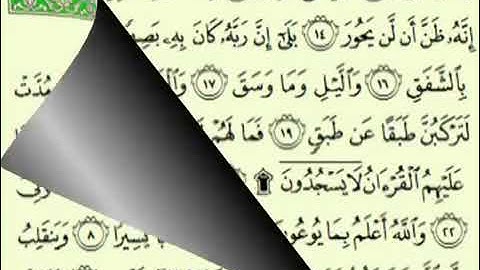 إِنَّهُۥ ظَنَّ أَن لَّن يَحُورَ ١٤ بَلَىٰٓ إِنَّ رَبَّهُۥ كَانَ بِهِۦ
بِٱلشَّفَقِ ١٦ وَٱلَّيْلِ وَمَا وَسَقَ ١٧
لَتَرْكَبُنَّ طَبَقًا عَن طَبَقٍ ١٩ فَمَا لَهُمْ
عَلَيْهِمُ ٱلْقُرْءَانُ لَا يَسْجُدُونَ ۩
٢٢ وَٱللَّهُ أَعْلَمُ بِمَا يَسِيرًا ٨ وَيَنقَلِبُ